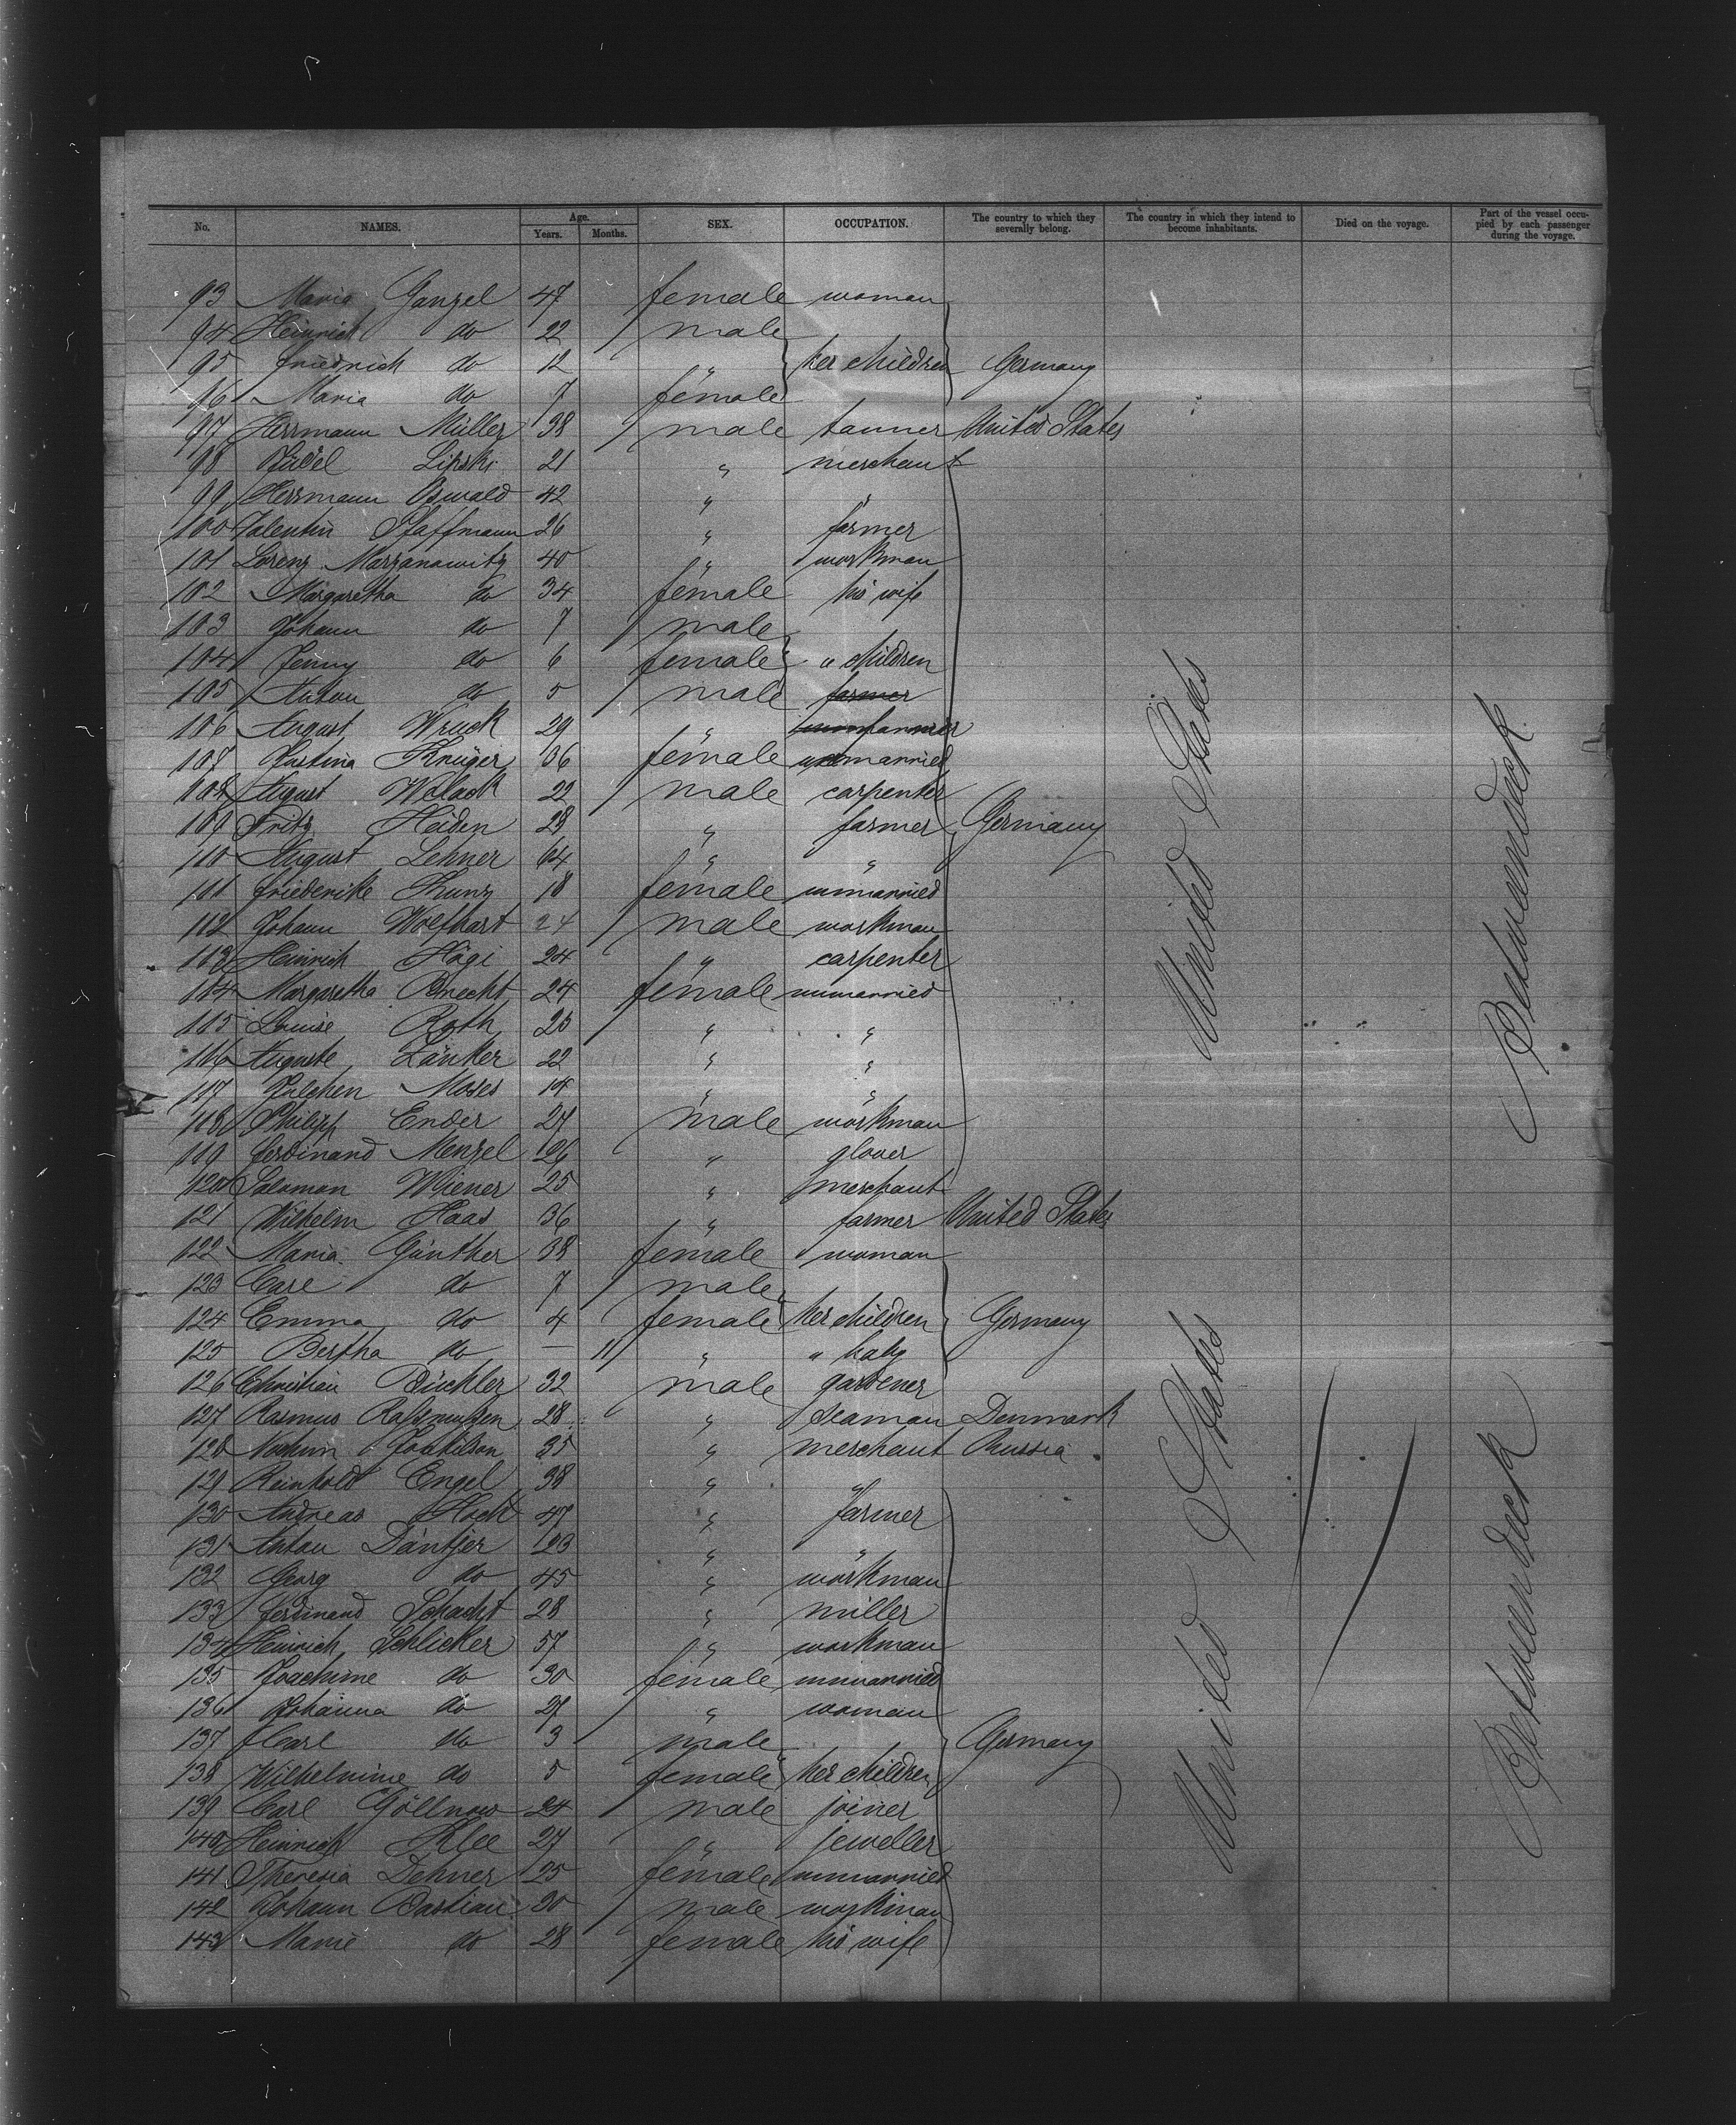 No. NAMES. Age. Years. Months. SEX. OCCUPATION. The country to which they severally belong. The country in which they intend to become inhabitants. Died on the voyage. Part of the vessel occupied by each passenger during the voyage.
93 Maria Ganzel 47 female woman
94 Heinrich do 22 male
95 Friedrich do 12 " her children Germany
96 Maria do 7 female
97 Herrmann Müller 38 male tanner United States
98 Lipski 21 " merchant
99 Herrmann Oswald 42 " "
100 Valentin Pfaffmann 26 " farmer
101 Lorenz Marzanawitz 40 " workman
102 Margaretha do 34 female his wife
103 Johann do 7 male
104 Jenny do 6 female " children
105 Anton do 5 male farmer
106 August Wruck 29 "
107 Justina Krüger 36 female unmarried
108 August Wolack 22 male carpenter
109 Fritz Heiden 28 " farmer Germany
110 August Lehner 64 " "
111 Friederike Kunz 18 female unmarried
112 Johann Wolfhart 24 male workman
113 Heinrich Hägi 24 " carpenter
114 Margaretha Brecht 24 female unmarried
115 Louise Roth 25 " "
116 Auguste Länker 22 " "
117 Julchen Moses 14 " "
118 Philipp Ender 27 male workman
119 Ferdinand Menzel 26 " glover
120 Salomon Wiener 25 " merchant
121 Wilhelm Haas 36 " farmer United States
122 Maria Günther 38 female woman
123 Carl do 7 male
124 Emma do 4 female her children Germany
125 Bertha do — 11 " " baby
126 Christian Büchler 32 male gardener
127 Rasmus Rassmussen 28 " seaman Denmark
128 Nochum 35 " merchant Russia
129 Reinhold Engel 38 " "
130 Andreas Hock 47 " farmer
131 Anton Däntjer 23 " "
132 Georg do 45 " workman
133 Ferdinand Schacht 28 " miller
134 Heinrich Schlicker 57 " workman
135 Joachime do 30 female unmarried
136 Johanna do 27 " woman
137 Carl do 3 male Germany
138 Wilhelmine do 5 female her children
139 Carl Göllnow 24 male joiner
140 Heinrich Klee 27 " jeweller
141 Theresia Dehner 25 female unmarried
142 Johann Bastian 30 male workman
143 Marie do 28 female his wife
United States
United States
Betweendeck
Betweendeck